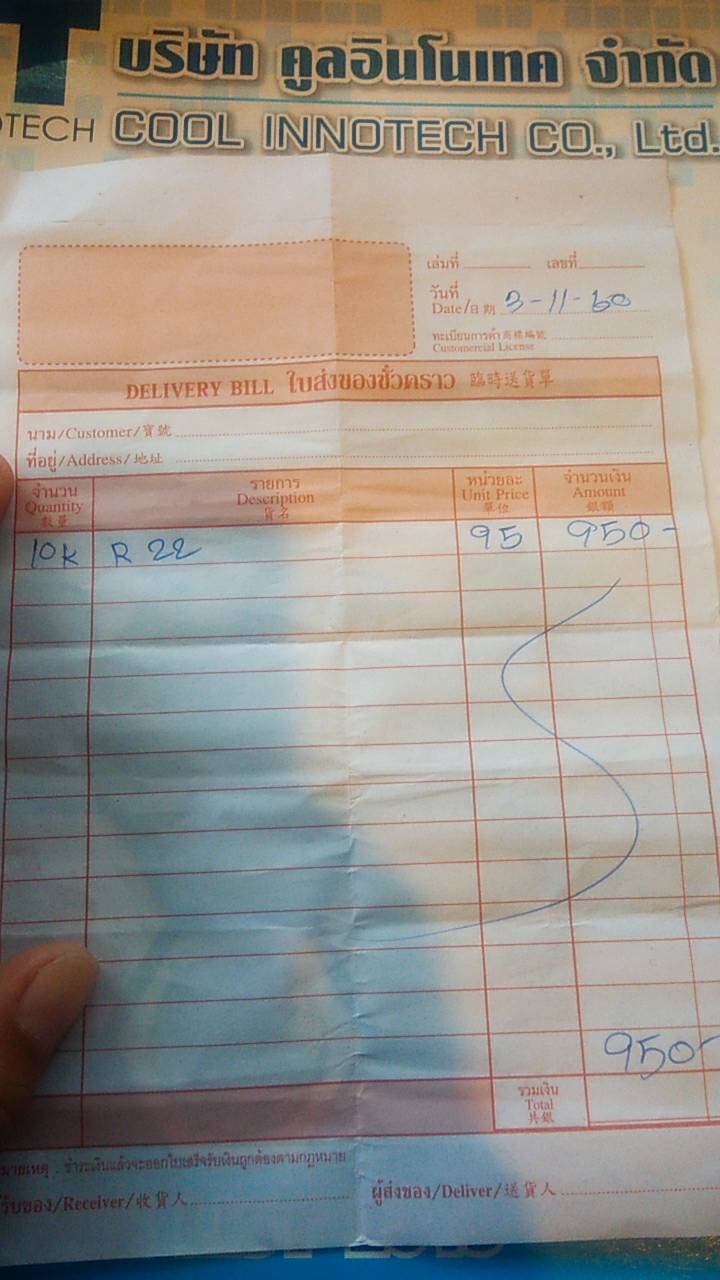 บริษัท คูลอินโนเทค จำกัด
OTECH COOL INNOTECH CO., Ltd.
เล่มที่ เลขที่
วันที่
Date/日期 3-11-60
ทะเบียนการค้า 商標編號
Customercial License
DELIVERY BILL ใบส่งของชั่วคราว 臨時送貨單
นาม/Customer/寶號
ที่อยู่/Address/地址
จำนวน รายการ หน่วยละ จำนวนเงิน
Quantity Description Unit Price Amount
數量 貨名 單位 銀額
10K R 22 95 950-
950-
รวมเงิน
Total
共銀
มายเหตุ : ชำระเงินแล้วจะออกใบเสร็จรับเงินถูกต้องตามกฎหมาย
รับของ/Receiver/收貨人 ผู้ส่งของ/Deliver/送貨人